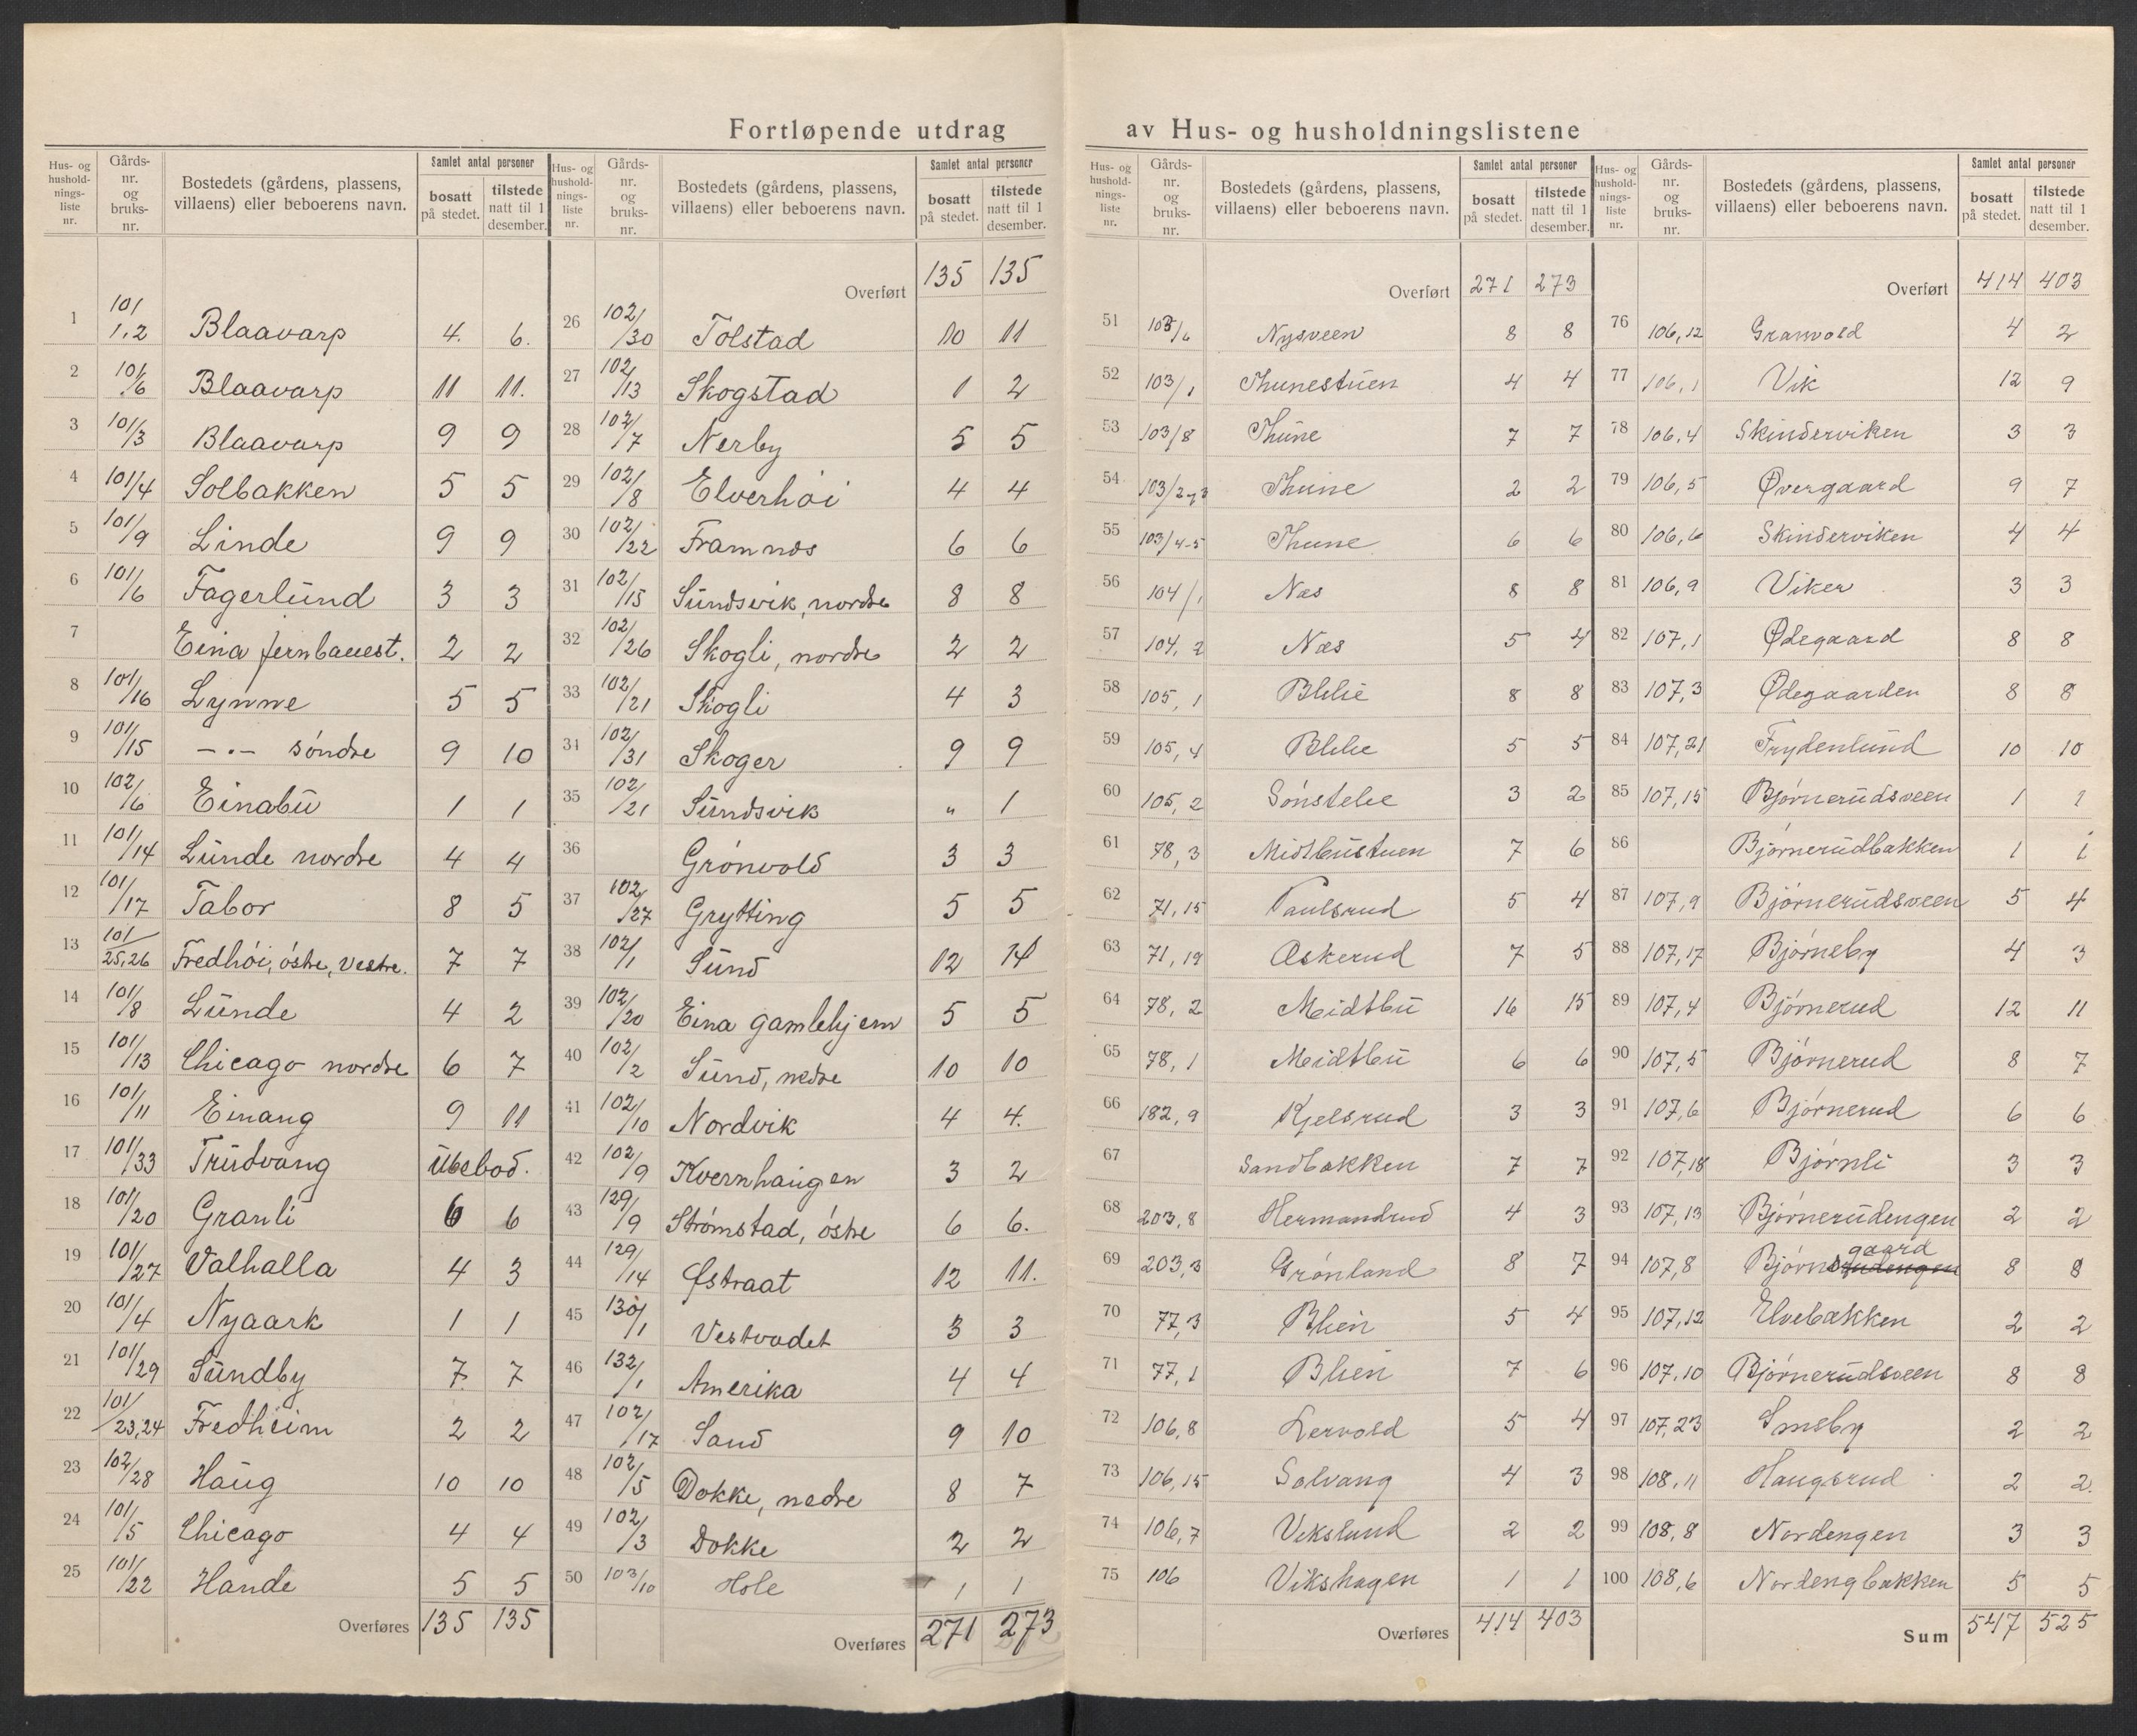 Fortløpende utdrag av Hus- og husholdningslistene
Hus- og husholdningsliste nr. Gårds-nr. og bruks-nr. Bostedets (gårdens, plassens, villaens) eller beboerens navn. Samlet antal personer bosatt på stedet. tilstede natt til 1 desember.
1 101/1,2 Blaavarp 4. 6.
2 101/6 Blaavarp 11 11.
3 101/3 Blaavarp 9 9
4 101/4 Solbakken 5 5
5 101/9 Linde 9 9
6 101/6 Fagerlund 3 3
7 Eina jernbanest. 2 2
8 101/16 Lynne 5 5
9 101/15 —„— söndre 9 10
10 102/6 Einabu 1 1
11 101/14 Lunde nordre 4 4
12 101/17 Tabor 8 5
13 101/25,26 Fredhöi, östre, vestre. 7 7
14 101/8 Lunde 4 2
15 101/13 Chicago nordre 6 7
16 101/11 Einang 9 11
17 101/33 Trudvang Ubebod.
18 101/20 Granli 6 6
19 101/27 Valhalla 4 3
20 101/4 Nyaark 1 1
21 101/29 Sundby 7. 7
22 101/23,24 Fredheim 2 2
23 102/28 Haug 10 10
24 101/5 Chicago 4 4
25 101/22 Hande 5 5
Overføres 135 135
Hus- og husholdningsliste nr. Gårds-nr. og bruks-nr. Bostedets (gårdens, plassens, villaens) eller beboerens navn. Samlet antal personer bosatt på stedet. tilstede natt til 1 desember.
Overført 135 135
26 102/30 Tolstad 10 11
27 102/13 Skogstad 1 2
28 102/7 Nerby 5 5
29 102/8 Elverhöi 4 4
30 102/22 Framnes 6 6
31 102/15 Sundsvik, nordre 8 8
32 102/26 Skogli, nordre 2 2
33 102/21 Skogli 4 3
34 102/31 Skoger 9 9
35 102/21 Sundsvik „ 1
36 Grönvold 3 3
37 102/27 Grytting 5 5
38 102/1 Sund 12 14
39 102/20 Eina gamlehjem 5 5
40 102/2 Sund, nedre 10 10
41 102/10 Nordvik 4 4.
42 102/9 Kvernhaugen 3 2
43 129/9 Strömstad, östre 6 6.
44 129/14 Østraat 12 11.
45 130/1 Vestvadet 3 3
46 132/1 Amerika 4 4
47 102/17 Sand 9 10
48 102/5 Dokke, nedre 8 7
49 102/3 Dokke 2 2
50 103/10 Hole 1 1
Overføres 271 273
Hus- og husholdningsliste nr. Gårds-nr. og bruks-nr. Bostedets (gårdens, plassens, villaens) eller beboerens navn. Samlet antal personer bosatt på stedet. tilstede natt til 1 desember.
Overført 271 273
51 103/6 Nysveen 8 8
52 103/1 Thunestuen 4 4
53 103/8 Thune 7 7
54 103/2,3 Thune 2 2
55 103/4-5 Thune 6 6
56 104/1 Næs 8 8
57 104, 2 Næs 5 4
58 105, 1 Blilie 8 8
59 105, 4 Blilie 5 5
60 105, 2 Sönstebe 3 2
61 78, 3 Midtbustuen 7 6
62 71, 15 Paulsrud 5 4
63 71, 19 Askerud 7 5
64 78, 2 Meidtbu 16 15
65 78, 1 Meidtbu 6 6
66 182, 9 Kjelsrud 3 3
67 Sandbakken 7 7
68 203, 8 Hermandrud 4 3
69 203, 3 Grönland 8 7
70 77, 3 Blien 5 4
71 77, 1 Blien 7 6
72 106, 8 Lervold 5 4
73 106, 15 Solvang 4 3
74 106, 7 Vikslund 2 2
75 106 Vikshagen 1 1
Overføres 414 403
Hus- og husholdningsliste nr. Gårds-nr. og bruks-nr. Bostedets (gårdens, plassens, villaens) eller beboerens navn. Samlet antal personer bosatt på stedet. tilstede natt til 1 desember.
Overført 414 403
76 106, 12 Granvold 4 2
77 106, 1 Vik 12 9
78 106, 4 Skinderviken 3 3
79 106, 5 Øvergaard 9 7
80 106, 6 Skinderviken 4 4
81 106, 9 Viker 3 3
82 107, 1 Ødegaard 8 8
83 107, 3 Ødegaarden 8 8
84 107, 21 Frydenlund 10 10
85 107, 15 Björnerudsveen 1 1
86 Björnerudbakken 1 1
87 107, 9 Björnerudsveen 5 4
88 107, 17 Björneby 4 3
89 107, 4 Björnerud 12 11
90 107, 5 Björnerud 8 7
91 107, 6 Björnerud 6 6
92 107, 18 Björnli 3 3
93 107, 13 Björnerudengen 2 2
94 107, 8 Björnerudengen gaard 8 8
95 107, 12 Elvebakken 2 2
96 107, 10 Björnerudsveen 8 8
97 107, 23 Smeby 2 2
98 108, 11 Haugsrud 2 2.
99 108, 8 Nordengen 3 3
100 108, 6 Nordengbakken 5 5
Sum 547 525